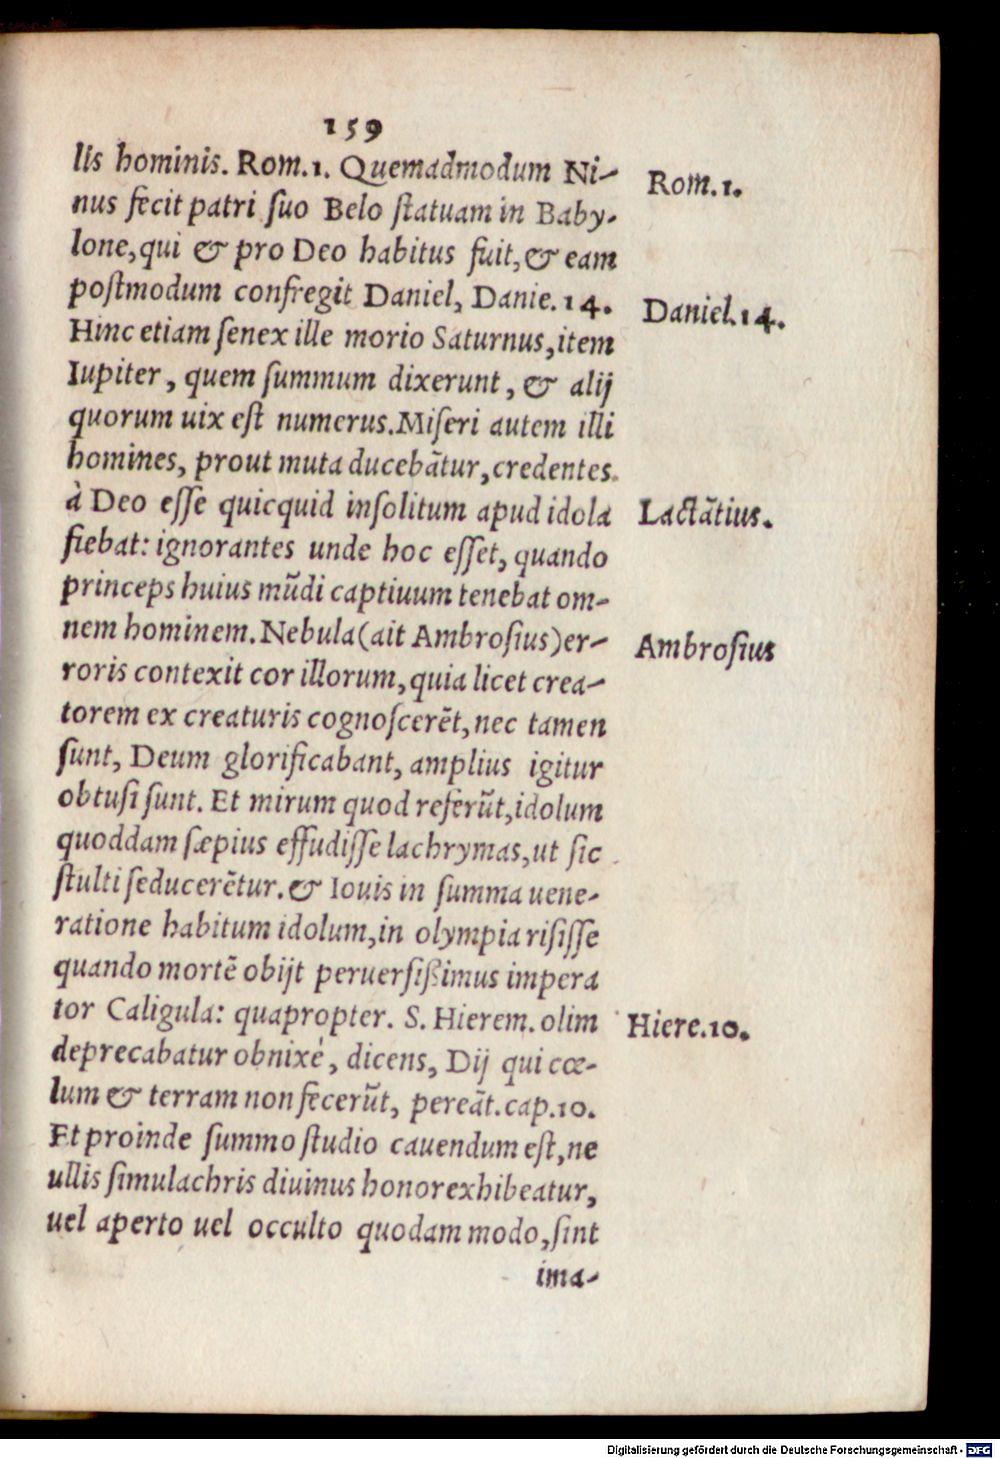 159
lis hominis. Rom.1. Quemadmodum Ni-
Rom.1.
nus fecit patri ſuo Belo ſtatuam in Baby-
lone, qui & pro Deo habitus fuit, & eam
poſtmodum confregit Daniel, Danie. 14.
Daniel.14.
Hinc etiam ſenex ille morio Saturnus, item
Iupiter, quem ſummum dixerunt, & alij
quorum uix eſt numerus. Miſeri autem illi
homines, prout muta ducebãtur, credentes
à Deo eſſe quicquid inſolitum apud idola
Lactãtius.
fiebat: ignorantes unde hoc eſſet, quando
princeps huius mũdi captiuum tenebat om-
nem hominem. Nebula (ait Ambroſius) er-
Ambroſius
roris contexit cor illorum, quia licet crea-
torem ex creaturis cognoſcerẽt, nec tamen
ſunt, Deum glorificabant, amplius igitur
obtuſi ſunt. Et mirum quod referũt, idolum
quoddam ſæpius effudiſſe lachrymas, ut ſic
ſtulti ſeducerẽtur. & Iouis in ſumma uene-
ratione habitum idolum, in olympia riſiſſe
quando mortẽ obijt peruerſiſsimus impera
tor Caligula: quapropter. S. Hierem. olim
Hiere.10.
deprecabatur obnixè, dicens, Dij qui cœ-
lum & terram non fecerũt, pereãt. cap.10.
Et proinde ſummo ſtudio cauendum eſt, ne
ullis ſimulachris diuinus honor exhibeatur,
uel aperto uel occulto quodam modo, ſint
ima-
Digitalisierung gefördert durch die Deutsche Forschungsgemeinschaft - DFG